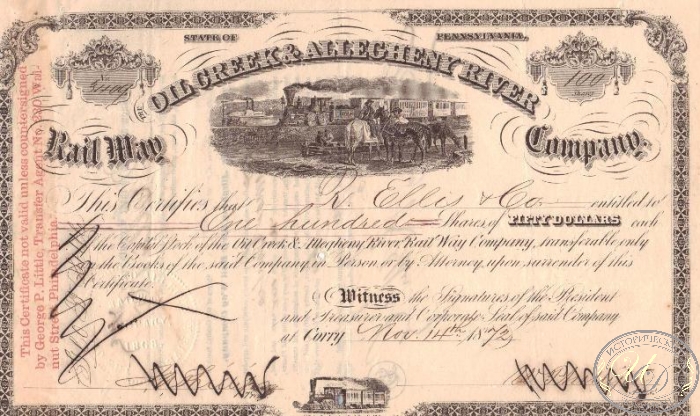 STATE OF PENNSYLVANIA.
100
Shares
THE OIL CREEK & ALLEGHENY RIVER
Rail Way Company.
This Certifies that R. Ellis & Co entitled to
One hundred Shares of FIFTY DOLLARS each
of the Capital Stock of the Oil Creek & Allegheny River Rail Way Company, transferable only
on the Books of the said Company, in Person or by Attorney, upon surrender of this
Certificate.
Witness the Signatures of the President
and Treasurer and Corporate Seal of said Company
at Corry Nov. 14th 1872
This Certificate not valid unless countersigned
by George P. Little, Transfer Agent No. 230 Wal-
nut Street Philadelphia.
ИСТОРИЧЕСК